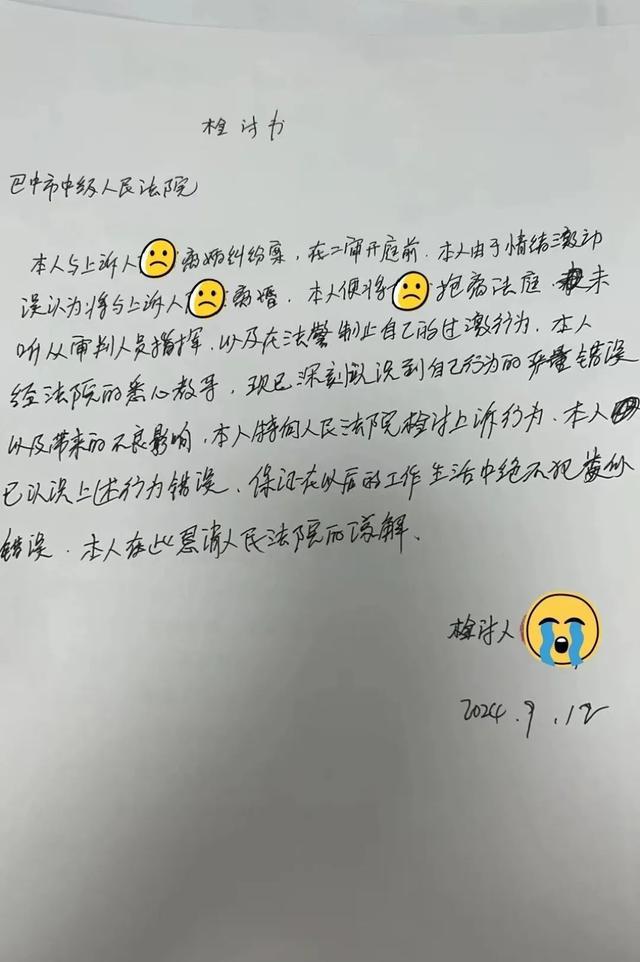 检讨书
巴中市中级人民法院
本人与上诉人离婚纠纷案，在二审开庭前，本人由于情绪激动
误认为将与上诉人离婚，本人便将抱离法庭，未
听从审判人员指挥，以及在法警制止自己的过激行为，本人
经法院的悉心教导，现已深刻认识到自己行为的严重错误
以及带来的不良影响，本人特向人民法院检讨上诉行为，本人
已认识上述行为错误，保证在以后的工作生活中绝不犯类似
错误，本人在此恳请人民法院的谅解、
检讨人
2024.9.12